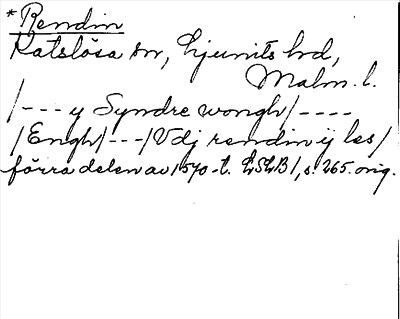 *Rendin
Katslösa sn, Ljunits hd,
Malm. l.
/--- y Syndre wongh/----
/Engh/---/Vdj rendin ij les/
förra delen av 1570-t. LSLB 1, s. 265. orig.